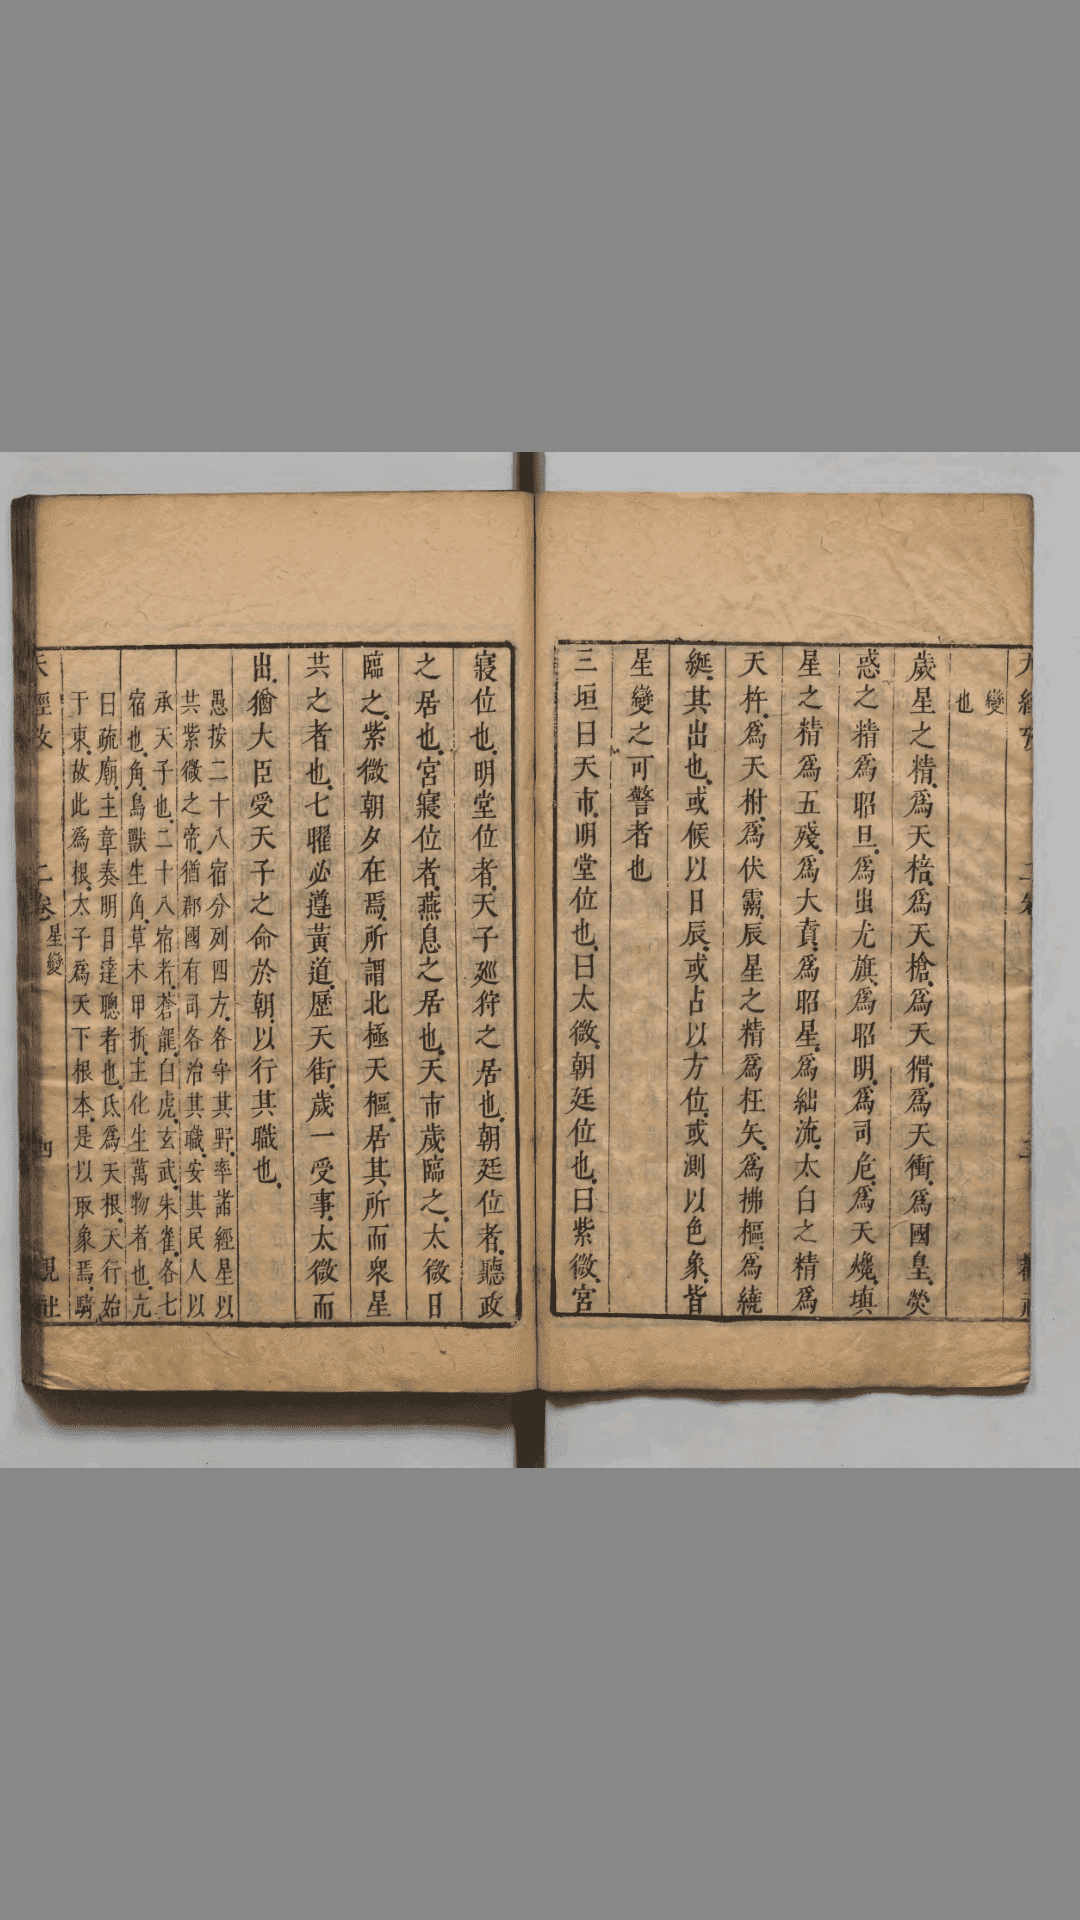 變
也
歲星之精、爲天棓、爲天槍、爲天猾、爲天衝、爲國皇、熒
惑之精爲昭旦、爲蚩尤旗、爲昭明、爲司危、爲天欃、填
星之精爲五殘、爲大賁、爲昭星、爲絀流、太白之精爲
天杵、爲天柎、爲伏靈、辰星之精爲枉矢、爲拂樞、爲繞
綎、其出也、或候以日辰、或占以方位、或測以色象、皆
星變之可警者也
三垣曰天市、明堂位也、曰太微、朝廷位也、曰紫微、宮
寢位也、明堂位者、天子廵狩之居也、朝廷位者、聽政
之居也、宮寢位者、燕息之居也、天市歲臨之、太微日
臨之、紫微朝夕在焉、所謂北極天樞、居其所而衆星
共之者也、七曜必遵黃道、歷天街、歲一受事、太微而
出、猶大臣受天子之命於朝、以行其職也、
愚按二十八宿分列四方、各守其野、率諸經星以
共紫微之帝、猶郡國有司各治其職、安其民人以
承天子也、二十八宿者、蒼龍、白虎、玄武、朱雀、各七
宿也、角、鳥獸生角、草木甲拆、主化生萬物者也、亢
曰疏廟、主章奏明目達聰者也、氐爲天根、天行始
于東、故此爲根、太子爲天下根本、是以取象焉、騶
二卷
星變
四